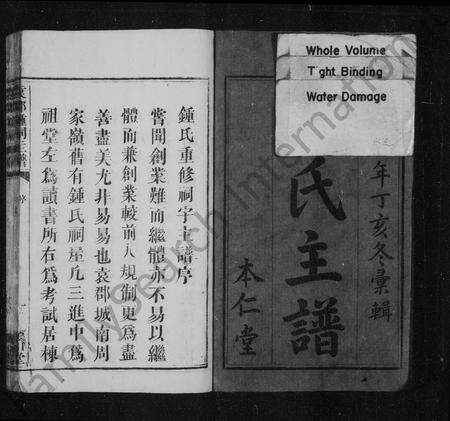 Whole Volume
Tight Binding
Water Damage
年丁亥冬彙輯
氏主譜
本仁堂
鍾氏重修祠宇主譜序
嘗聞創業難而繼體亦不易以繼
體而兼創業較前人規制更爲盡
善盡美尤非易易也袁郡城南周
家嶺舊有鍾氏祠屋凢三進中爲
祖堂左爲讀書所右爲考試居棟
序
FamilySearch International